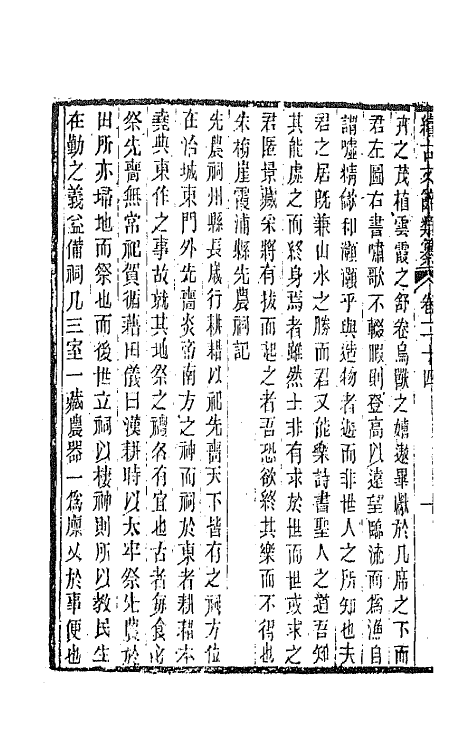 續古文辭類纂 卷二十四
卉之茂植雲霞之舒卷鳥獸之嬉遨畢獻於几席之下而
君左圖右書嘯歌不輟暇則登高以遠望臨流而爲漁自
謂噓精緜和灝灝乎與造物者遊而非世人之所知也夫
君之居旣兼山水之勝而君又能樂詩書聖人之道吾知
其能處之而終身焉者雖然士非有求於世而世或求之
君匿景藏采將有拔而起之者吾恐欲終其樂而不得也
朱梅崖霞浦縣先農祠記
先農祠州縣長歲行耕耤以祀先嗇天下皆有之祠方位
在治城東門外先嗇炎帝南方之神而祠於東者耕耤本
堯典東作之事故就其地祭之禮各有宜也古者每食必
祭先嗇無常祀賀循藉田儀曰漢耕時以太牢祭先農於
田所亦埽地而祭也而後世立祠以棲神則所以教民生
在勤之義益備祠凡三室一藏農器一爲廩又於事便也